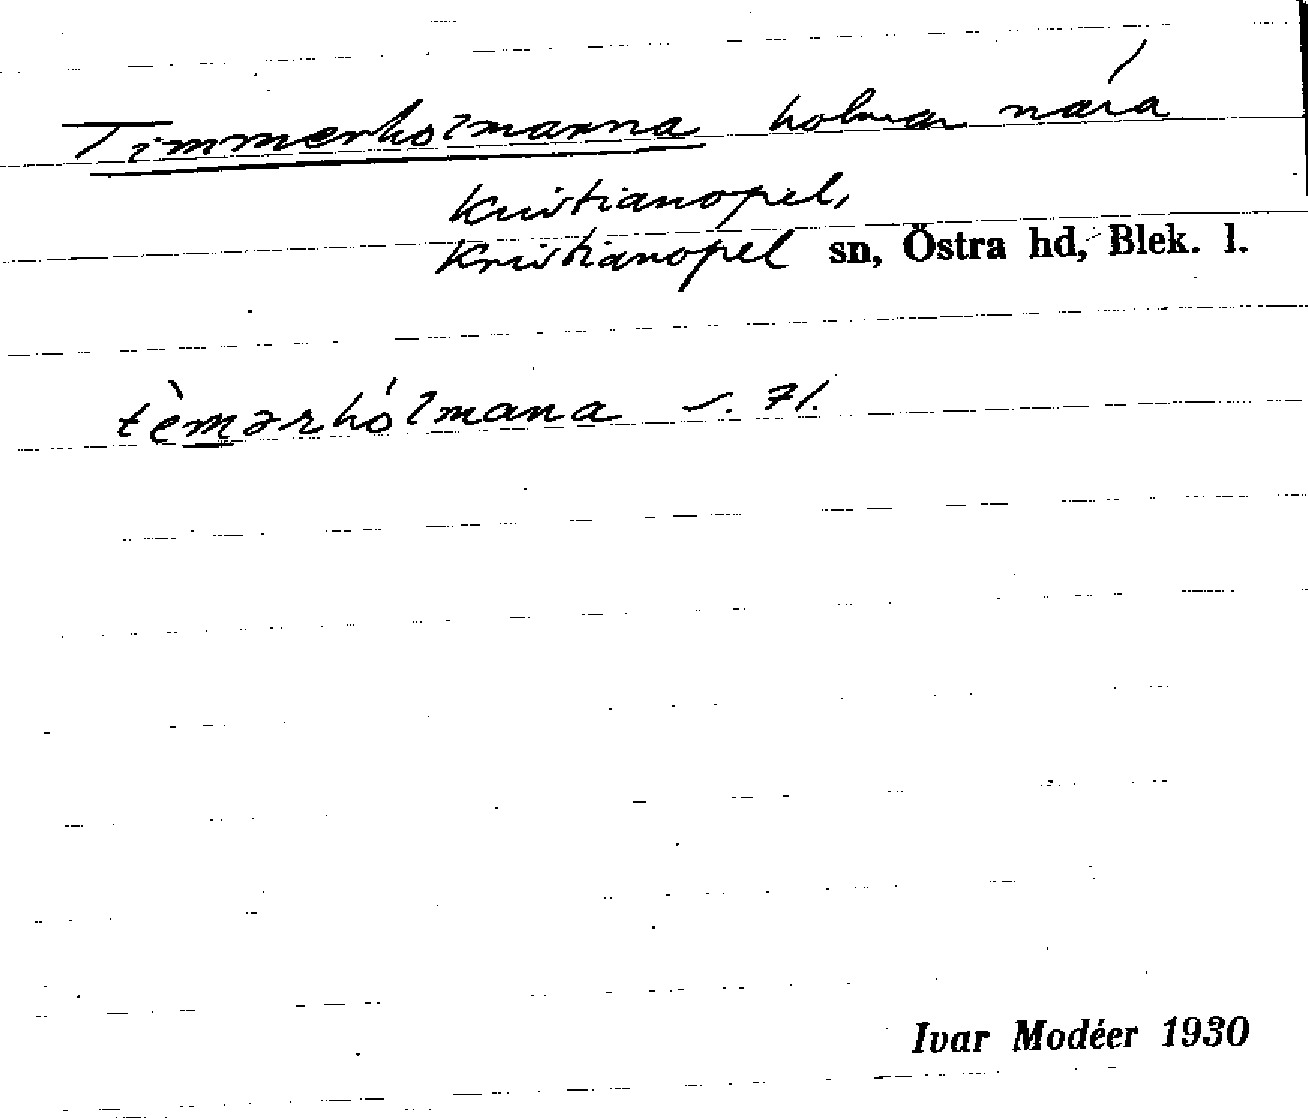 Timmerholmarna holmar nära
Kristianopel,
Kristianopel sn, Östra hd, Blek. l.
tèmərhólmana s. 71.
Ivar Modéer 1930